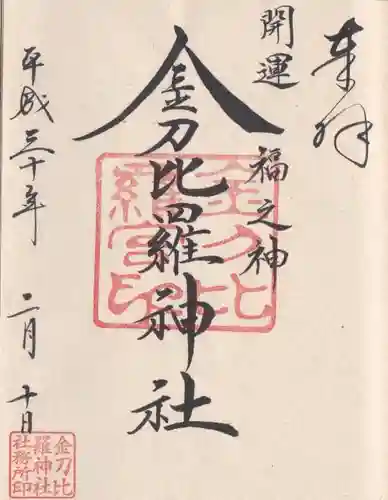 奉拝
開運 福之神
金刀比羅神社
平成三十年 二月 十日
金刀比
羅宮印
金刀比
羅神社
社務所印